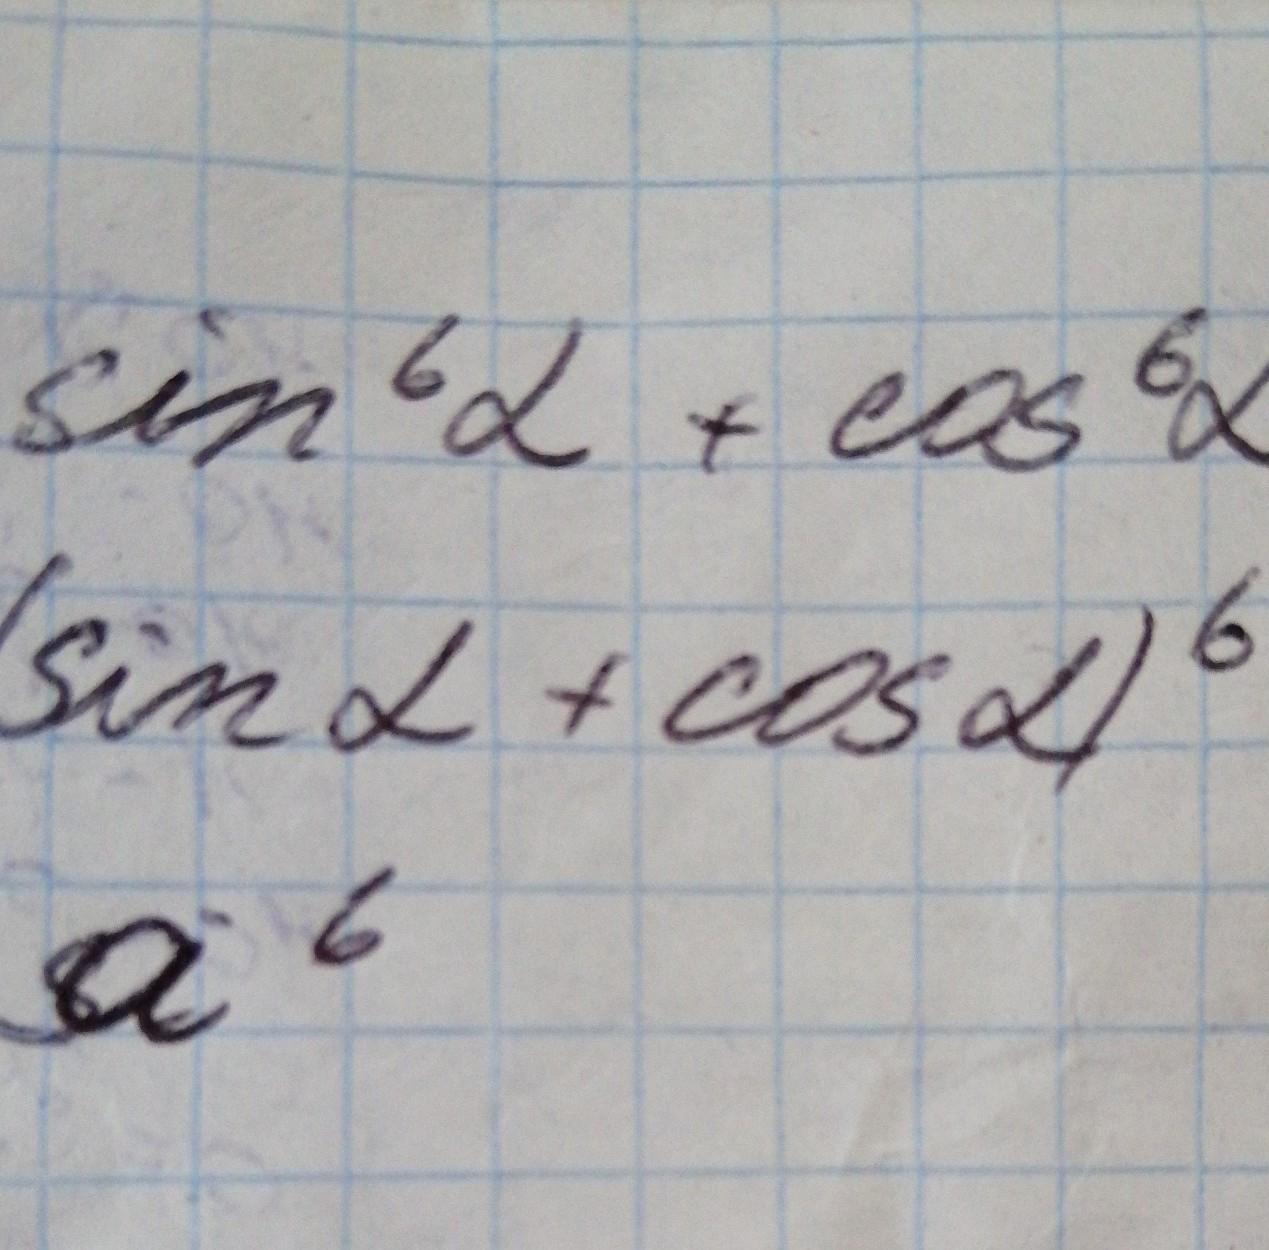 sin⁶α + cos⁶α
(sin α + cos α)⁶
a⁶